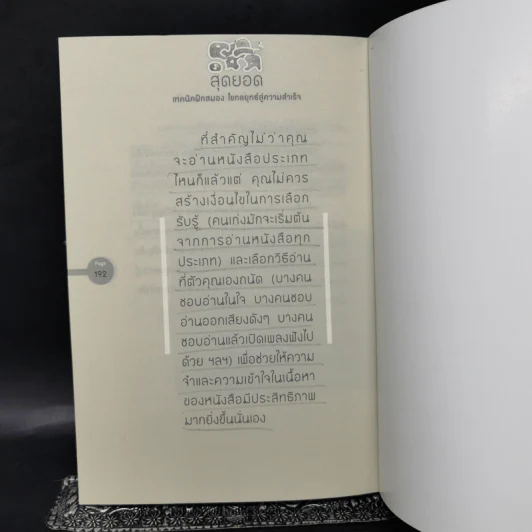 สุดยอด
เทคนิคฝึกสมอง ไขกลยุทธ์สู่ความสำเร็จ
ที่สำคัญไม่ว่าคุณ
จะอ่านหนังสือประเภท
ไหนก็แล้วแต่ คุณไม่ควร
สร้างเงื่อนไขในการเลือก
รับรู้ (คนเก่งมักจะเริ่มต้น
จากการอ่านหนังสือทุก
ประเภท) และเลือกวิธีอ่าน
ที่ตัวคุณเองถนัด (บางคน
ชอบอ่านในใจ บางคนชอบ
อ่านออกเสียงดังๆ บางคน
ชอบอ่านแล้วเปิดเพลงฟังไป
ด้วย ฯลฯ) เพื่อช่วยให้ความ
จำและความเข้าใจในเนื้อหา
ของหนังสือมีประสิทธิภาพ
มากยิ่งขึ้นนั่นเอง
Page
192